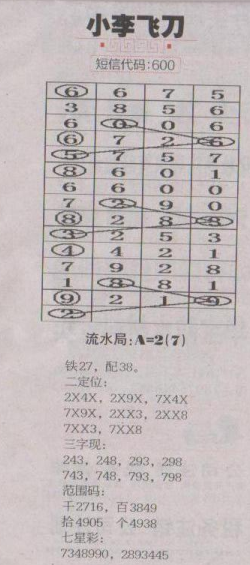 小李飞刀
短信代码:600
6 6 7 5
3 8 5 6
6 0 0 6
6 7 2 6
5 7 5 7
8 6 0 1
6 6 0 0
7 2 9 0
8 2 8 8
3 2 5 3
4 4 2 1
7 9 2 8
1 8 8 1
9 2 1 9
2
流水局:A=2(7)
铁27，配38。
二定位:
2X4X，2X9X，7X4X
7X9X，2XX3，2XX8
7XX3，7XX8
三字现:
243，248，293，298
743，748，793，798
范围码:
千2716，百3849
拾4905 个4938
七星彩:
7348990，2893445